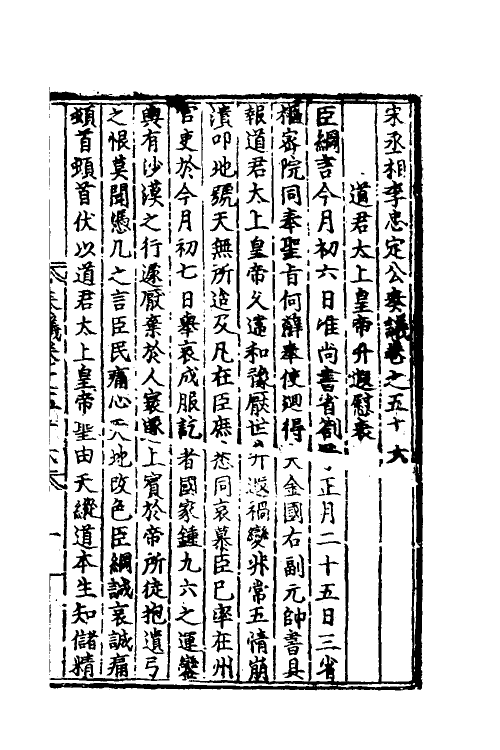 宋丞相李忠定公奏議卷之五十六
道君太上皇帝升遐慰表
臣綱言今月初六日准尚書省劄正月二十五日三省
樞密院同奉聖旨何蘚奉使迴得大金國右副元帥書具
報道君太上皇帝久違和豫厭世升遐禍變非常五情崩
潰叩地號天無所逮及凡在臣庶悉同哀慕臣已率在州
官吏於今月初七日舉哀成服訖者國家鍾九六之運鑾
輿有沙漠之行遽厭棄於人寰上賓於帝所徒抱遺弓
之恨莫聞憑几之言臣民痛心天地改色臣綱誠哀誠痛
頓首頓首伏以道君太上皇帝聖由天縱道本生知儲精